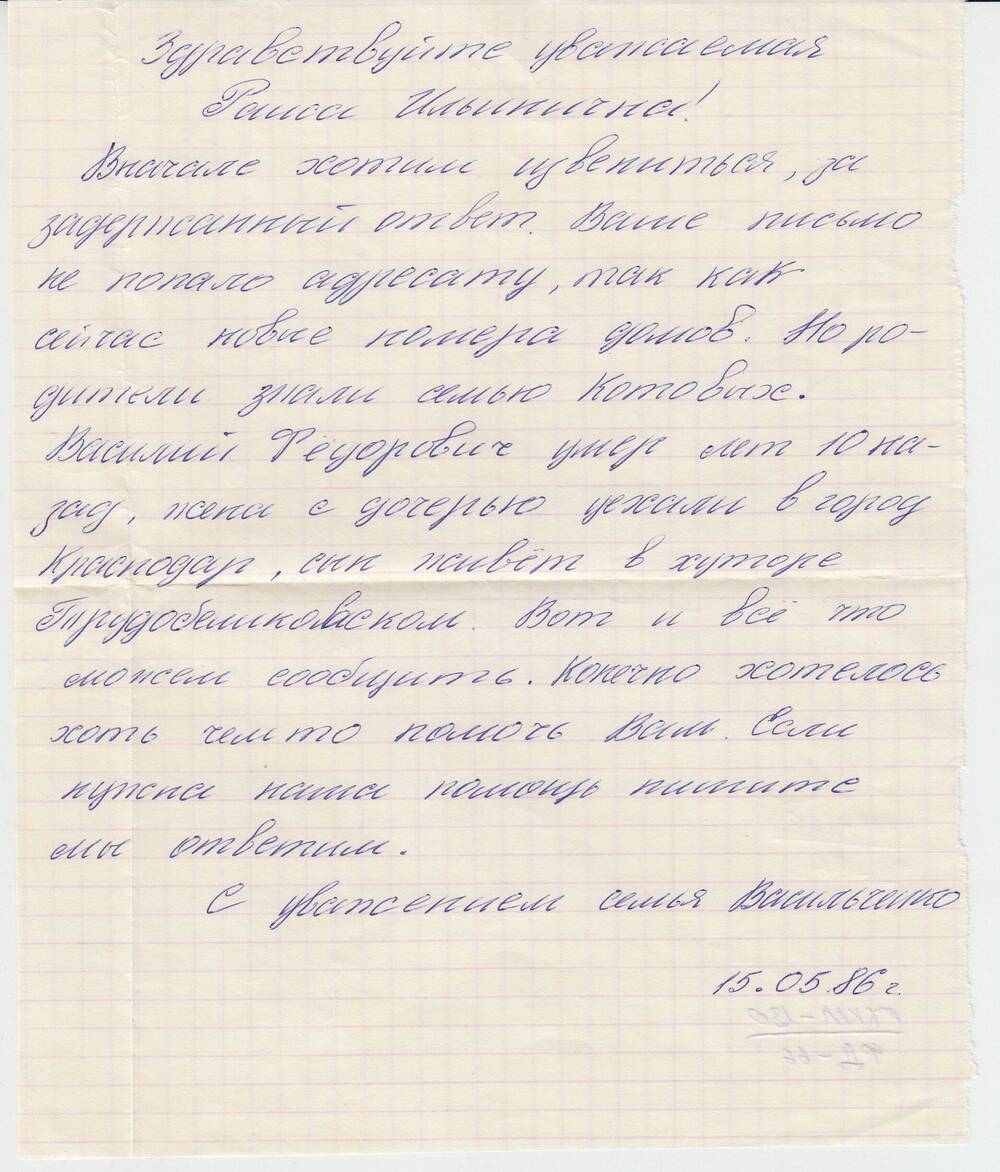 Здравствуйте уважаемая
Раиса Ильинична!
Вначале хотим извениться, за
задержанный ответ. Ваше письмо
не попало адресату, так как
сейчас новые номера домов. Но ро-
дители знали семью Котовых.
Василий Фёдорович умер лет 10 на-
зад, жена с дочерью уехали в город
Краснодар, сын живёт в хуторе
Трудобеликовском. Вот и всё что
можем сообщить. Конечно хотелось
хоть чем то помочь Вам. Если
нужна наша помощь пишите
мы ответим.
С уважением семья Васильченко
15.05.86 г.